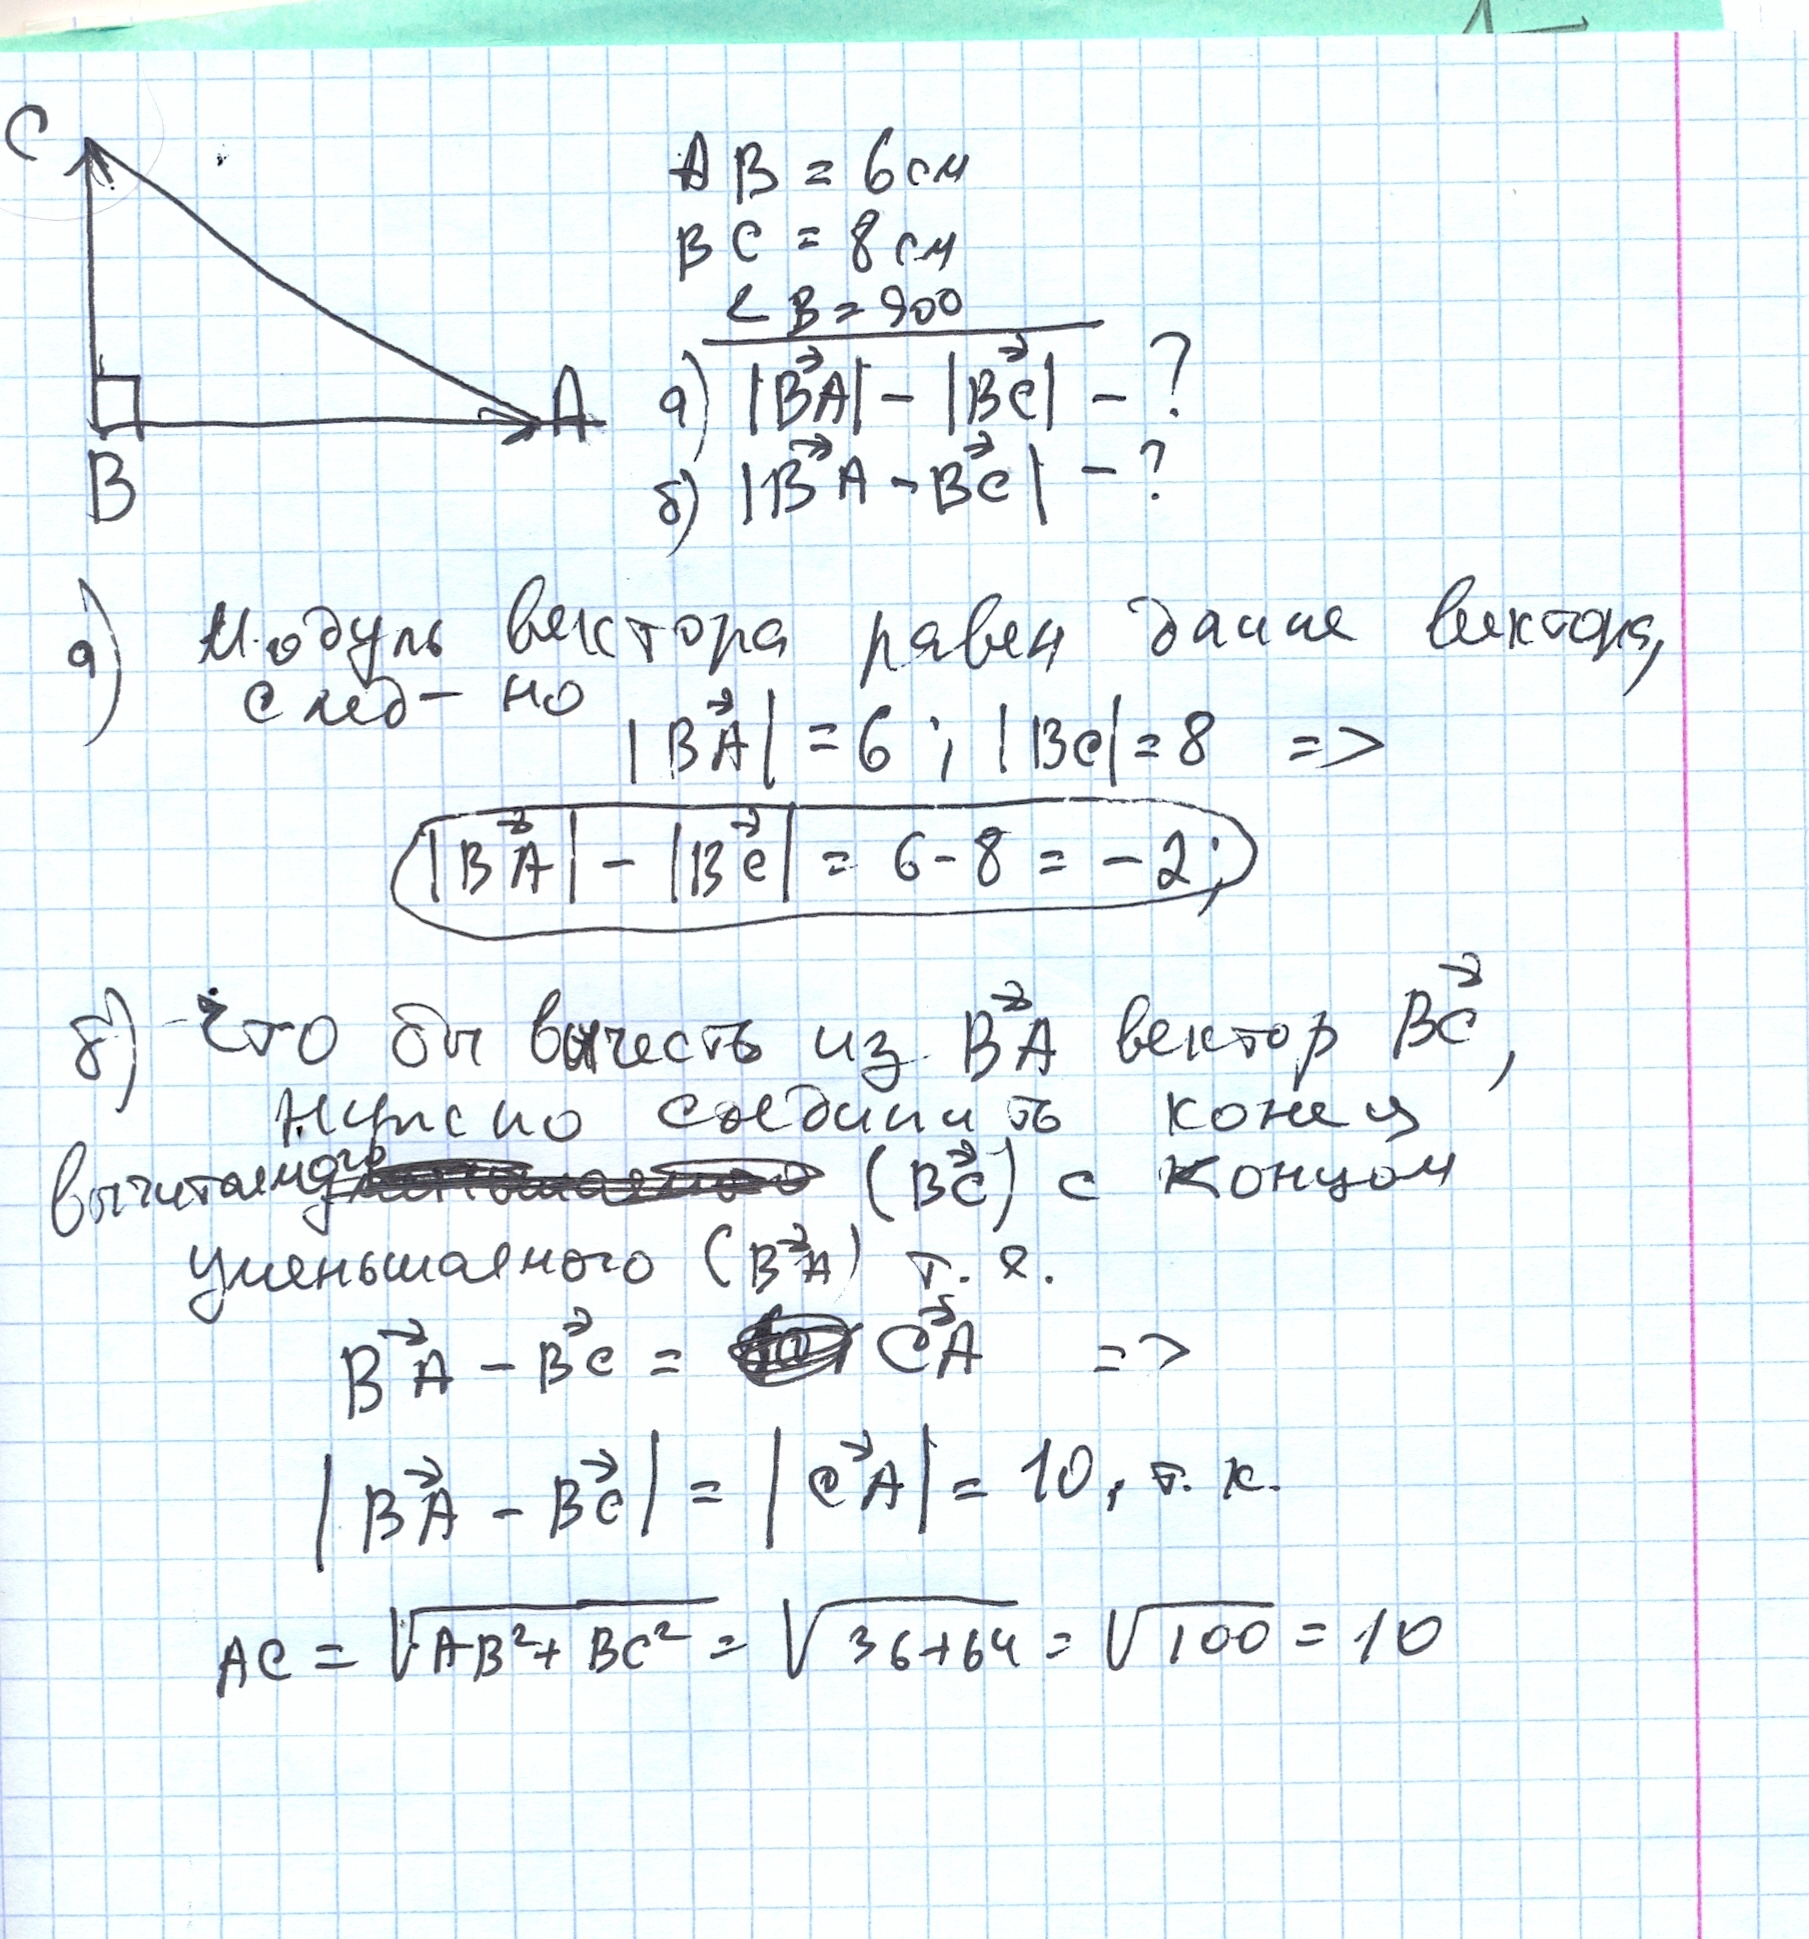 C
B
A
AB = 6 см
BC = 8 см
∠B = 90°
а) |B⃗A| - |B⃗C| - ?
б) |B⃗A - B⃗C| - ?
а) Модуль вектора равен длине вектора,
след-но
|B⃗A| = 6 ; |BC| = 8 =>
|B⃗A| - |B⃗C| = 6 - 8 = -2;
б) Что бы вычесть из B⃗A вектор B⃗C,
нужно соединить конец
вычитаемого (B⃗C) с концом
уменьшаемого (B⃗A) т. е.
B⃗A - B⃗C = C⃗A =>
|B⃗A - B⃗C| = |C⃗A| = 10, т. к.
AC = √AB² + BC² = √36+64 = √100 = 10